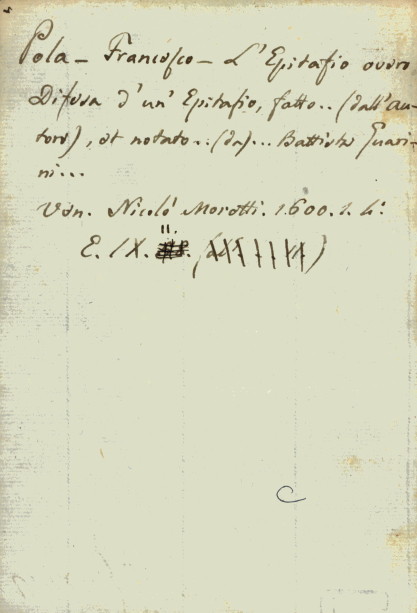 Pola - Francesco - L'Epitafio overo
Difesa d'un' Epitafio, fatto.. (dall'au-
tore), et notato... (da)... Battista Guari-
ni...
Ven. Nicolò Moretti. 1.600. 1. 4:
E. IX. 11.